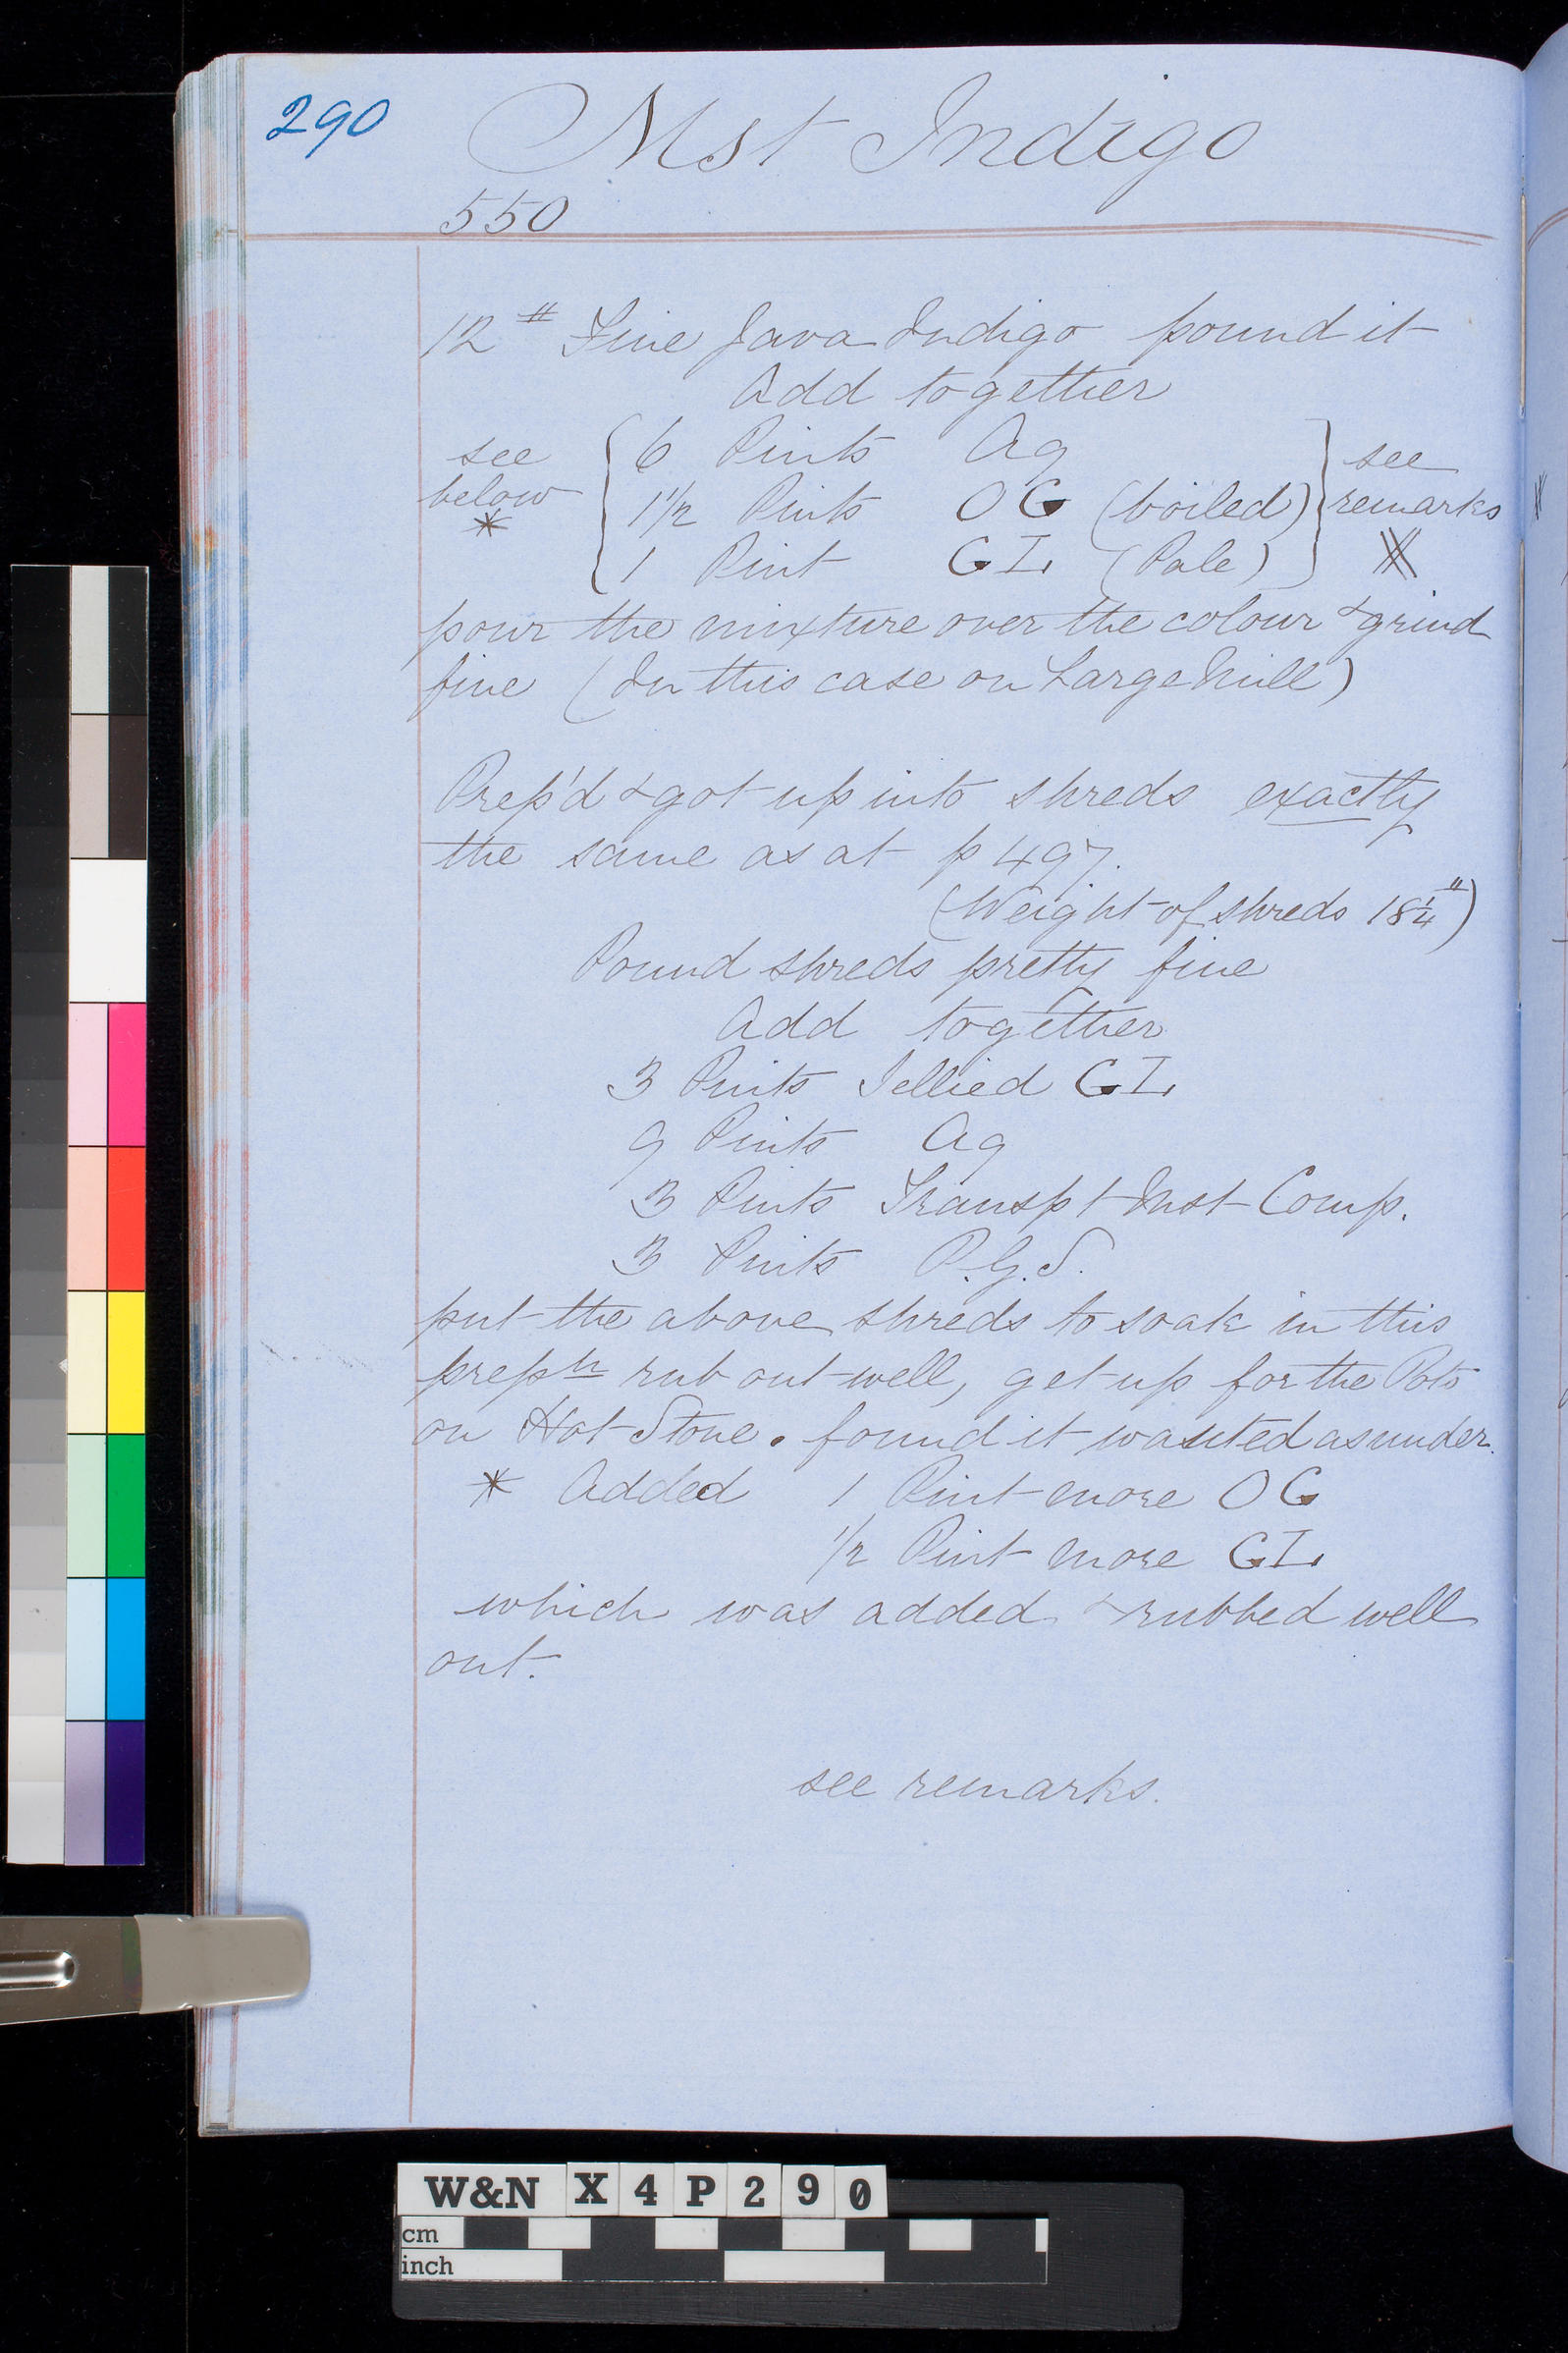 290
Mst Indigo
550
12 # Fine Java Indigo pound it
Add together
see below * { 6 Pints Aq } see remarks
1 1/2 Pints OG (boiled)
1 Pint GL (Pale)
pour the mixture over the colour & grind
fine (In this case on Large Mill)
Prep'd & got up into shreds exactly
the same as at p 497.
(Weight of shreds 18 1/4 #)
Pound shreds pretty fine
Add together
3 Pints Jellied GL
9 Pints Aq
3 Pints Transpt Mst Comp.
3 Pints P.G.S.
put the above shreds to soak in this
prepn rub out well, get up for the Pots
on Hot Stone. found it wanted as under.
* Added 1 Pint more OG
1/2 Pint more GL
which was added & rubbed well
out.
see remarks.
W&N X4P290
cm
inch